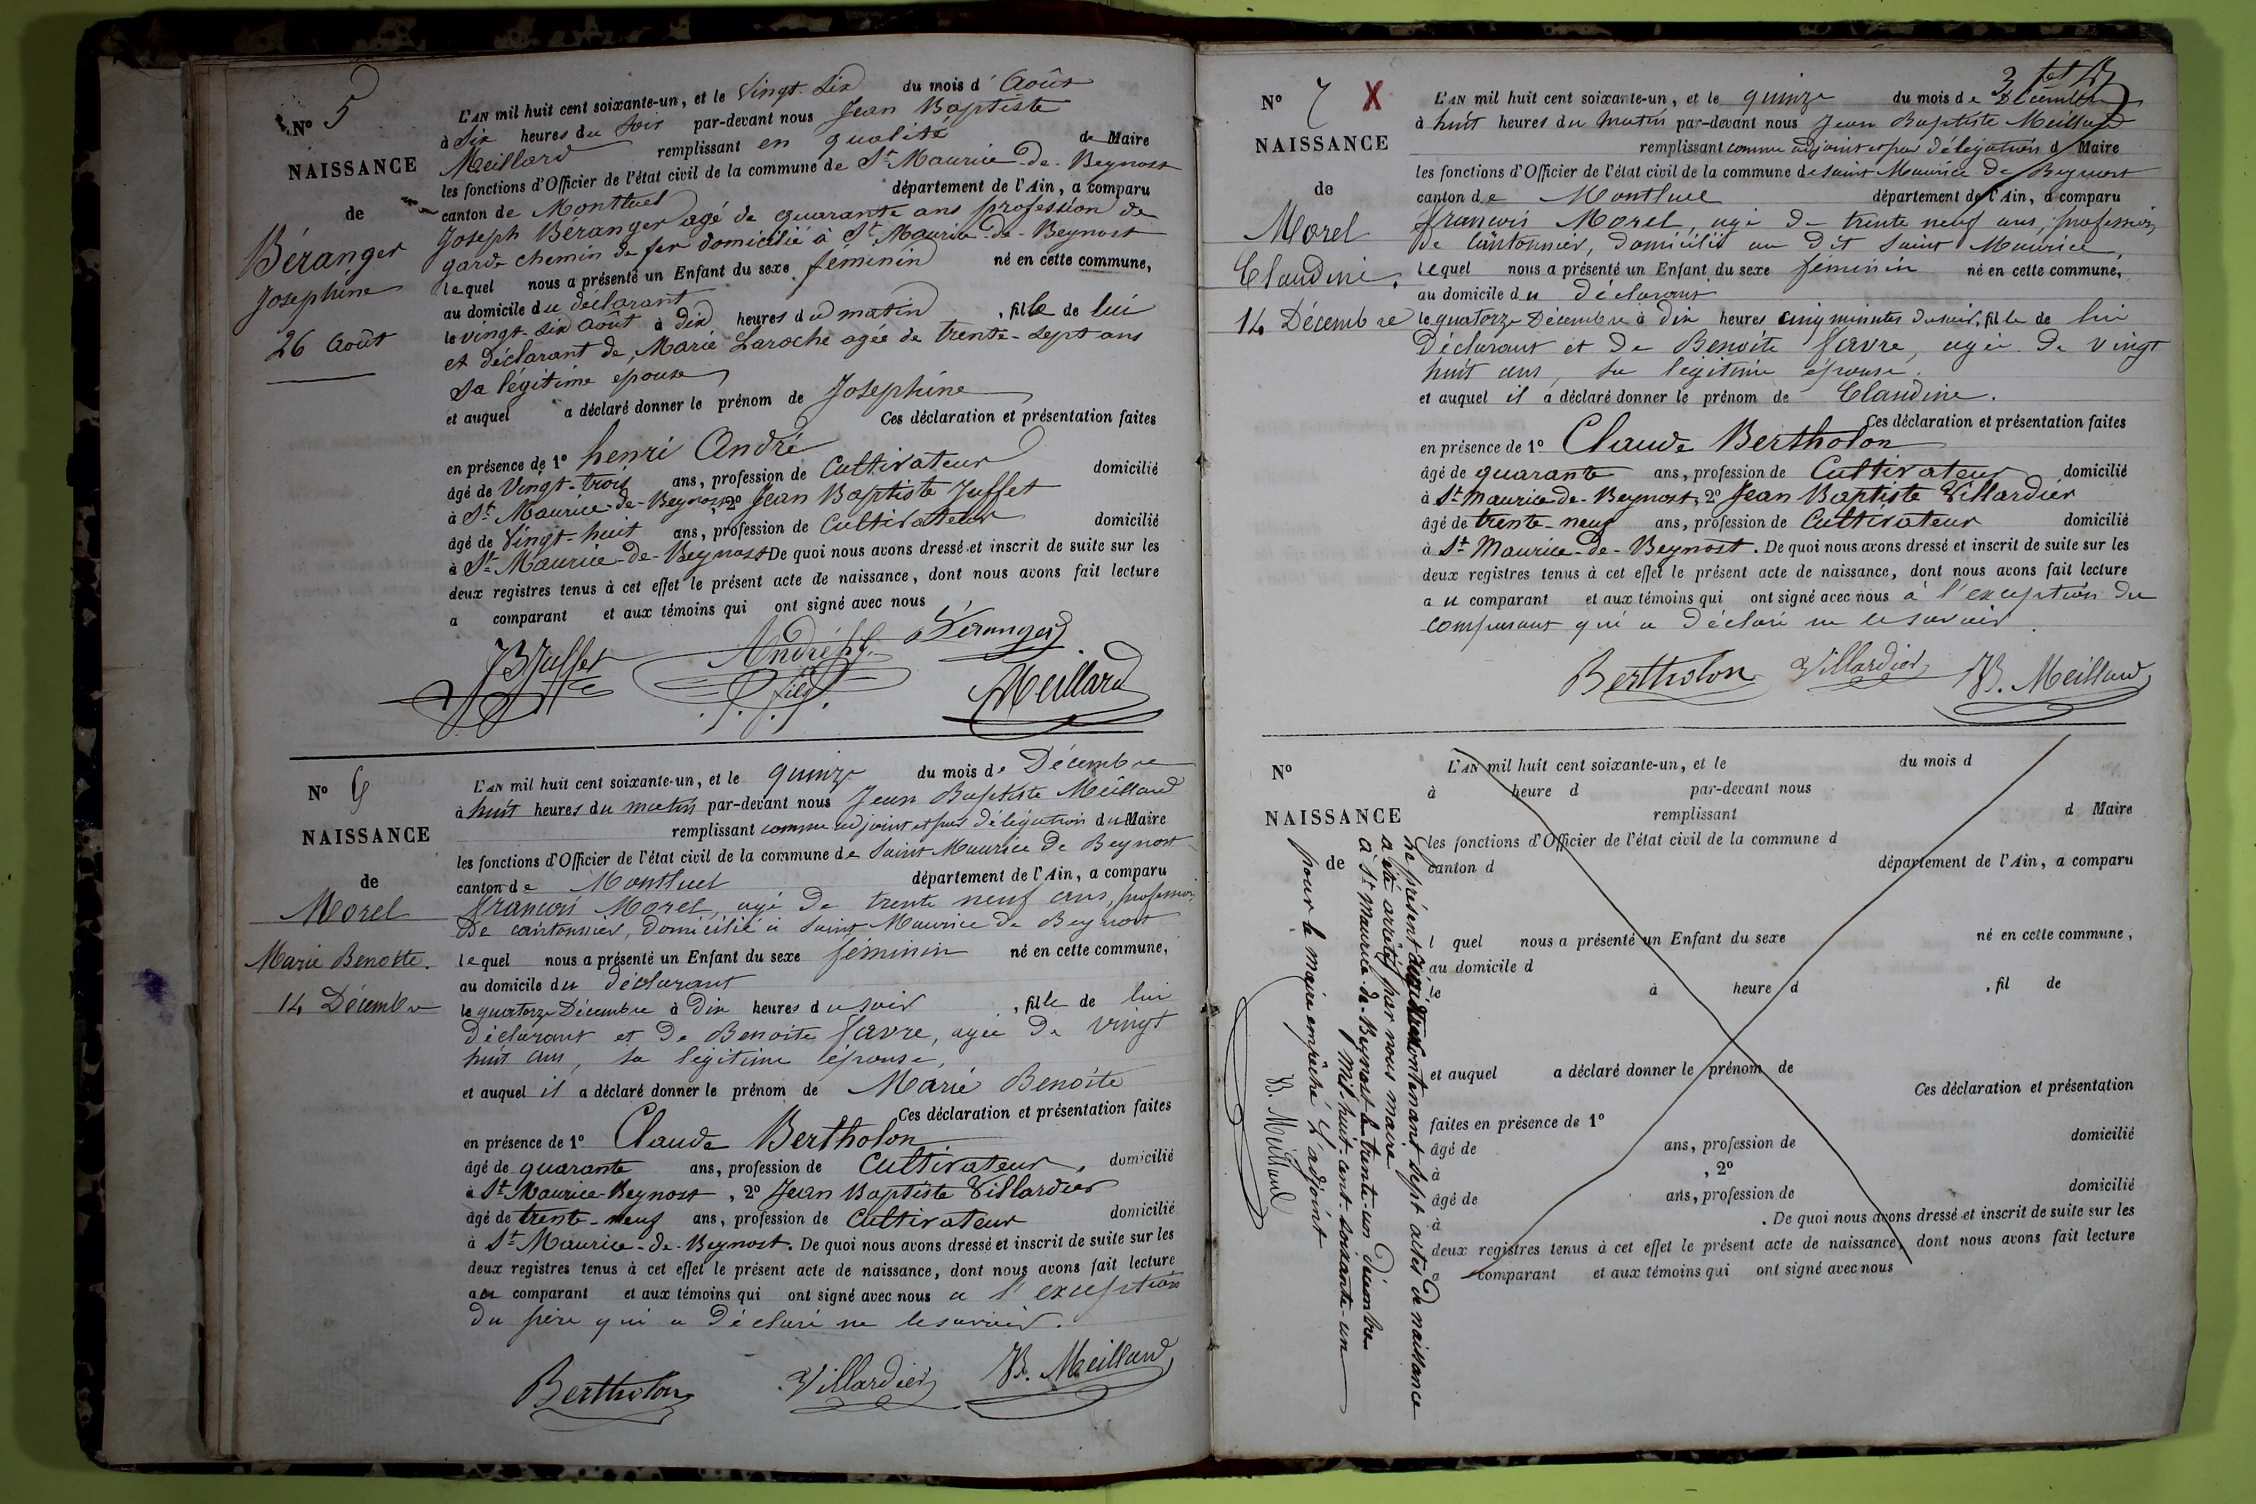 N° 5
NAISSANCE
de
Béranger
Josephine
26 Août
L'AN mil huit cent soixante-un, et le Vingt-Six du mois d'Août
à Six heures du Soir par-devant nous Jean Baptiste
Meillard remplissant en qualité de Maire
les fonctions d'Officier de l'état civil de la commune de St Maurice-de-Beynost
canton de Montluel département de l'Ain, a comparu
Joseph Béranger agé de quarante ans profession de
garde chemin de fer domicilié à St Maurice-de-Beynost
lequel nous a présenté un Enfant du sexe féminin né en cette commune,
au domicile du déclarant
le vingt-six Août à dix heures du matin, fille de lui
et déclarant de Marie Laroche agée de trente-sept ans
sa légitime epouse
et auquel a déclaré donner le prénom de Josephine
Ces déclaration et présentation faites
en présence de 1° henri André
âgé de Vingt-trois ans, profession de Cultivateur domicilié
à St Maurice-de-Beynost, 2° Jean Baptiste Juffet
âgé de Vingt-huit ans, profession de Cultivateur domicilié
à St Maurice-de-Beynost De quoi nous avons dressé et inscrit de suite sur les
deux registres tenus à cet effet le présent acte de naissance, dont nous avons fait lecture
a comparant et aux témoins qui ont signé avec nous
JB Juffet André fils Béranger
Meillard
N° 6
NAISSANCE
de
Morel
Marie Benoîte.
14 Décembre
L'AN mil huit cent soixante-un, et le quinze du mois de Décembre
à huit heures du matin par-devant nous Jean Baptiste Meillard
remplissant comme adjoint et par délégation du Maire
les fonctions d'Officier de l'état civil de la commune de Saint Maurice de Beynost
canton de Montluel département de l'Ain, a comparu
francois Morel, agé de trente neuf ans, profession
de cantonnier, domicilié à Saint Maurice de Beynost
lequel nous a présenté un Enfant du sexe féminin né en cette commune,
au domicile du déclarant
le quatorze Décembre à dix heures du soir, fille de lui
déclarant et de Benoite favre, agée de vingt
huit ans, sa légitime épouse,
et auquel il a déclaré donner le prénom de Marie Benoite
Ces déclaration et présentation faites
en présence de 1° Claude Bertholon
âgé de quarante ans, profession de Cultivateur, domicilié
à St Maurice-Beynost, 2° Jean Baptiste Villardier
âgé de trente-neuf ans, profession de Cultivateur domicilié
à St Maurice-de-Beynost. De quoi nous avons dressé et inscrit de suite sur les
deux registres tenus à cet effet le présent acte de naissance, dont nous avons fait lecture
au comparant et aux témoins qui ont signé avec nous a l'exception
du père qui a déclaré ne le savoir.
Bertholon Villardier JB. Meillard
N° 7 X
NAISSANCE
de
Morel
Claudine.
14 Décembre
L'AN mil huit cent soixante-un, et le quinze du mois de Décembre
à huit heures du matin par-devant nous Jean Baptiste Meillard
remplissant comme adjoint et par délégation d Maire
les fonctions d'Officier de l'état civil de la commune de Saint Maurice de Beynost
canton de Montluel département de l'Ain, a comparu
francois Morel, agé de trente neuf ans, profession
de cantonnier, domicilié au dit Saint Maurice,
lequel nous a présenté un Enfant du sexe féminin né en cette commune,
au domicile du déclarant
le quatorze Décembre à dix heures cinq minutes du soir, fille de lui
déclarant et de Benoite favre, agée de vingt
huit ans, sa légitime épouse.
et auquel il a déclaré donner le prénom de Claudine.
Ces déclaration et présentation faites
en présence de 1° Claude Bertholon
âgé de quarante ans, profession de Cultivateur domicilié
à St Maurice-de-Beynost, 2° Jean Baptiste Villardier
âgé de trente-neuf ans, profession de Cultivateur domicilié
à St Maurice-de-Beynost. De quoi nous avons dressé et inscrit de suite sur les
deux registres tenus à cet effet le présent acte de naissance, dont nous avons fait lecture
au comparant et aux témoins qui ont signé avec nous à l'exception du
comparant qui a déclaré ne le savoir.
Bertholon Villardier JB. Meillard
N°
NAISSANCE
de
L'AN mil huit cent soixante-un, et le du mois d
à heure d par-devant nous
remplissant d Maire
les fonctions d'Officier de l'état civil de la commune d
canton d département de l'Ain, a comparu
l quel nous a présenté un Enfant du sexe né en cette commune,
au domicile d
le à heure d , fil de
et auquel a déclaré donner le prénom de
Ces déclaration et présentation
faites en présence de 1°
âgé de ans, profession de domicilié
à , 2°
âgé de ans, profession de domicilié
à . De quoi nous avons dressé et inscrit de suite sur les
deux registres tenus à cet effet le présent acte de naissance, dont nous avons fait lecture
a comparant et aux témoins qui ont signé avec nous
Le présent contenant sept actes de naissance
a été arrêté par nous maire
à St Maurice-de-Beynost le trente-un Décembre
Mil-huit-cent-soixante-un
pour le maire empêché l'adjoint
JB. Meillard